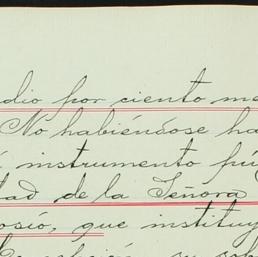 dio por ciento me
No habiéndose ha
instrumento pú
dad de la Señora
osío, que instituy